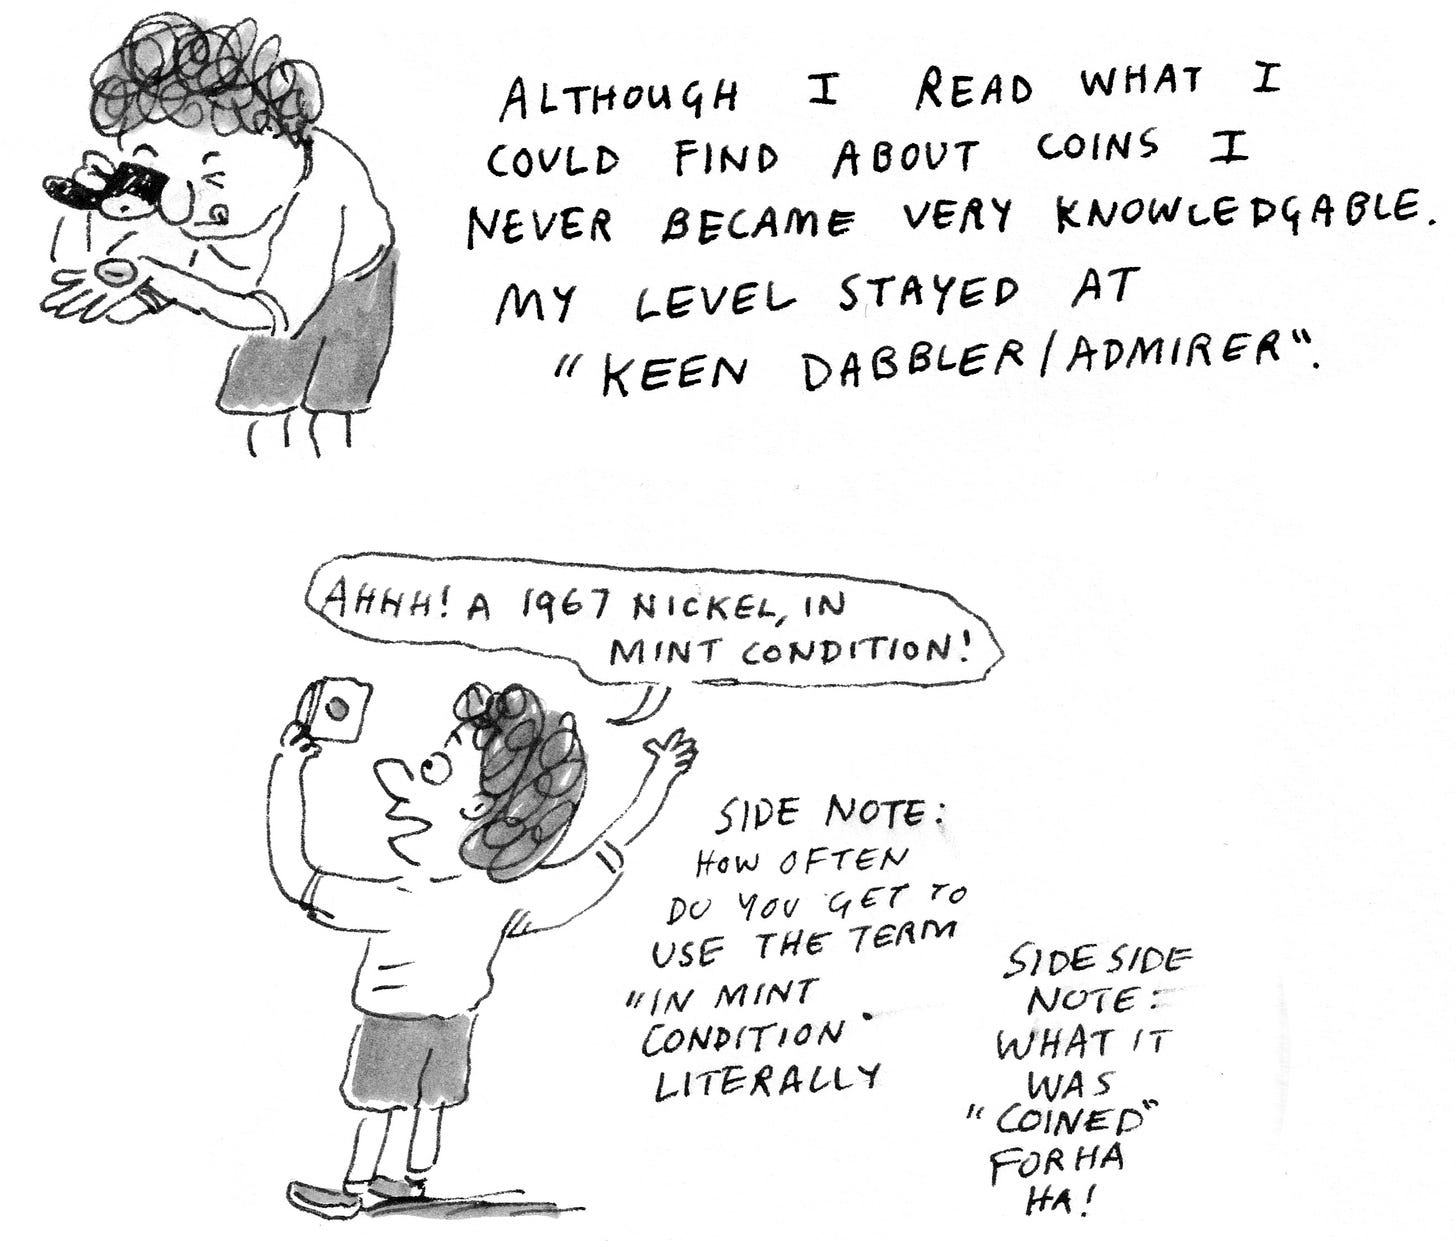 ALTHOUGH I READ WHAT I
COULD FIND ABOUT COINS I
NEVER BECAME VERY KNOWLEDGABLE.
MY LEVEL STAYED AT
"KEEN DABBLER/ADMIRER".
AHHH! A 1967 NICKEL, IN
MINT CONDITION!
SIDE NOTE:
HOW OFTEN
DO YOU GET TO
USE THE TERM
"IN MINT
CONDITION"
LITERALLY
SIDE SIDE
NOTE:
WHAT IT
WAS
"COINED"
FOR HA
HA!